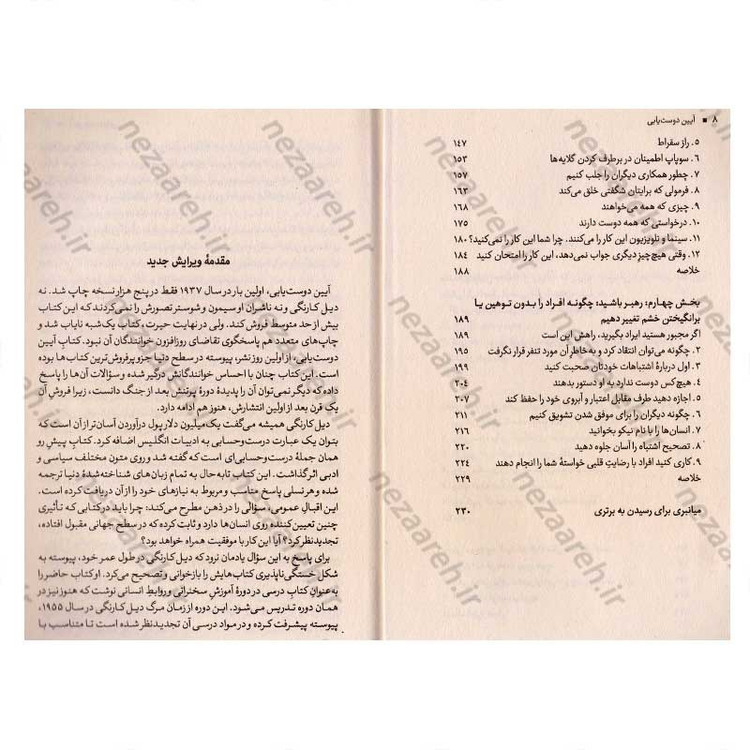 ۸ ■ آیین دوست‌یابی
۵. راز سقراط ۱۴۷
۶. سوپاپ اطمینان در برطرف کردن گلایه‌ها ۱۵۳
۷. چطور همکاری دیگران را جلب کنیم ۱۵۷
۸. فرمولی که برایتان شگفتی خلق می‌کند ۱۶۳
۹. چیزی که همه می‌خواهند ۱۶۸
۱۰. درخواستی که همه دوست دارند ۱۷۵
۱۱. سینما و تلویزیون این کار را می‌کنند. چرا شما این کار را نمی‌کنید؟ ۱۸۰
۱۲. وقتی هیچ‌چیز دیگری جواب نمی‌دهد، این کار را امتحان کنید ۱۸۴
خلاصه ۱۸۸
بخش چهارم: رهبر باشید: چگونه افراد را بدون توهین یا
برانگیختن خشم تغییر دهیم ۱۸۹
اگر مجبور هستید ایراد بگیرید، راهش این است ۱۸۹
۲. چگونه می‌توان انتقاد کرد و به‌خاطر آن مورد تنفر قرار نگرفت ۱۹۵
۳. اول دربارهٔ اشتباهات خودتان صحبت کنید ۱۹۹
۴. هیچ‌کس دوست ندارد به او دستور بدهند ۲۰۴
۵. اجازه دهید طرف مقابل اعتبار و آبروی خود را حفظ کند ۲۰۷
۶. چگونه دیگران را برای موفق شدن تشویق کنیم ۲۱۱
۷. انسان‌ها را با نام نیکو بخوانید ۲۱۶
۸. تصحیح اشتباه را آسان جلوه دهید ۲۲۰
۹. کاری کنید افراد با رضایتِ قلبی خواستهٔ شما را انجام دهند ۲۲۴
خلاصه ۲۲۹
میانبری برای رسیدن به برتری ۲۳۰
مقدمهٔ ویرایش جدید
آیین دوست‌یابی، اولین بار در سال ۱۹۳۷ فقط در پنج هزار نسخه چاپ شد. نه
دیل کارنگی و نه ناشران او سیمون و شوستر تصورش را نمی‌کردند که این کتاب
بیش از حد متوسط فروش کند. ولی در نهایت حیرت، کتاب یک‌شبه نایاب شد و
چاپ‌های متعدد هم پاسخگوی تقاضای روزافزون خوانندگان آن نبود. کتاب آیین
دوست‌یابی، از اولین روز نشر، پیوسته در سطح دنیا جزء پرفروش‌ترین کتاب‌ها بوده
است. این کتاب چنان با احساس خوانندگانش درگیر شده و سؤالات آن‌ها را پاسخ
داده که دیگر نمی‌توان آن را پدیدهٔ دورهٔ پرتنش بعد از جنگ دانست، زیرا فروش آن
یک قرن بعد از اولین انتشارش، هنوز هم ادامه دارد.
دیل کارنگی همیشه می‌گفت یک میلیون دلار پول درآوردن آسان‌تر از آن است که
بتوان یک عبارت درست‌وحسابی به ادبیات انگلیس اضافه کرد. کتاب پیشِ رو
همان جملهٔ درست‌وحسابی‌ای است که گفته شد و روی متون مختلف سیاسی و
ادبی اثر گذاشت. این کتاب تابه‌حال به تمام زبان‌های شناخته‌شدهٔ دنیا ترجمه
شده و هر نسلی پاسخ مناسب و مربوط به نیازهای خود را از آن دریافت کرده است.
این اقبال عمومی، سؤالی را در ذهن مطرح می‌کند: چرا باید در کتابی که تأثیری
چنین تعیین‌کننده روی انسان‌ها دارد و ثابت کرده که در سطح جهانی مقبول افتاده،
تجدیدنظر کرد؟ آیا این کار با موفقیت همراه خواهد بود؟
برای پاسخ به این سؤال یادمان نرود که دیل کارنگی در طول عمر خود، پیوسته به
شکل خستگی‌ناپذیری کتاب‌هایش را بازخوانی و تصحیح می‌کرد. او کتاب حاضر را
به‌عنوان کتاب درسی در دورهٔ آموزشِ سخنرانی و روابطِ انسانی نوشت که هنوز نیز در
همان دوره تدریس می‌شود. این دوره از زمان مرگ دیل کارنگی در سال ۱۹۵۵،
پیوسته پیشرفت کرده و در مواد درسی آن تجدیدنظر شده است تا متناسب با
nezaareh.ir